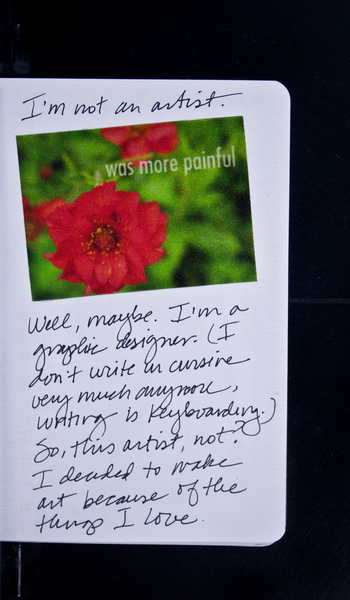 I'm not an artist.
was more painful
Well, maybe. I'm a
graphic designer. (I
don't write in cursive
very much anymore,
writing is keyboarding.)
So, this artist, not?
I decided to make
art because of the
things I love.